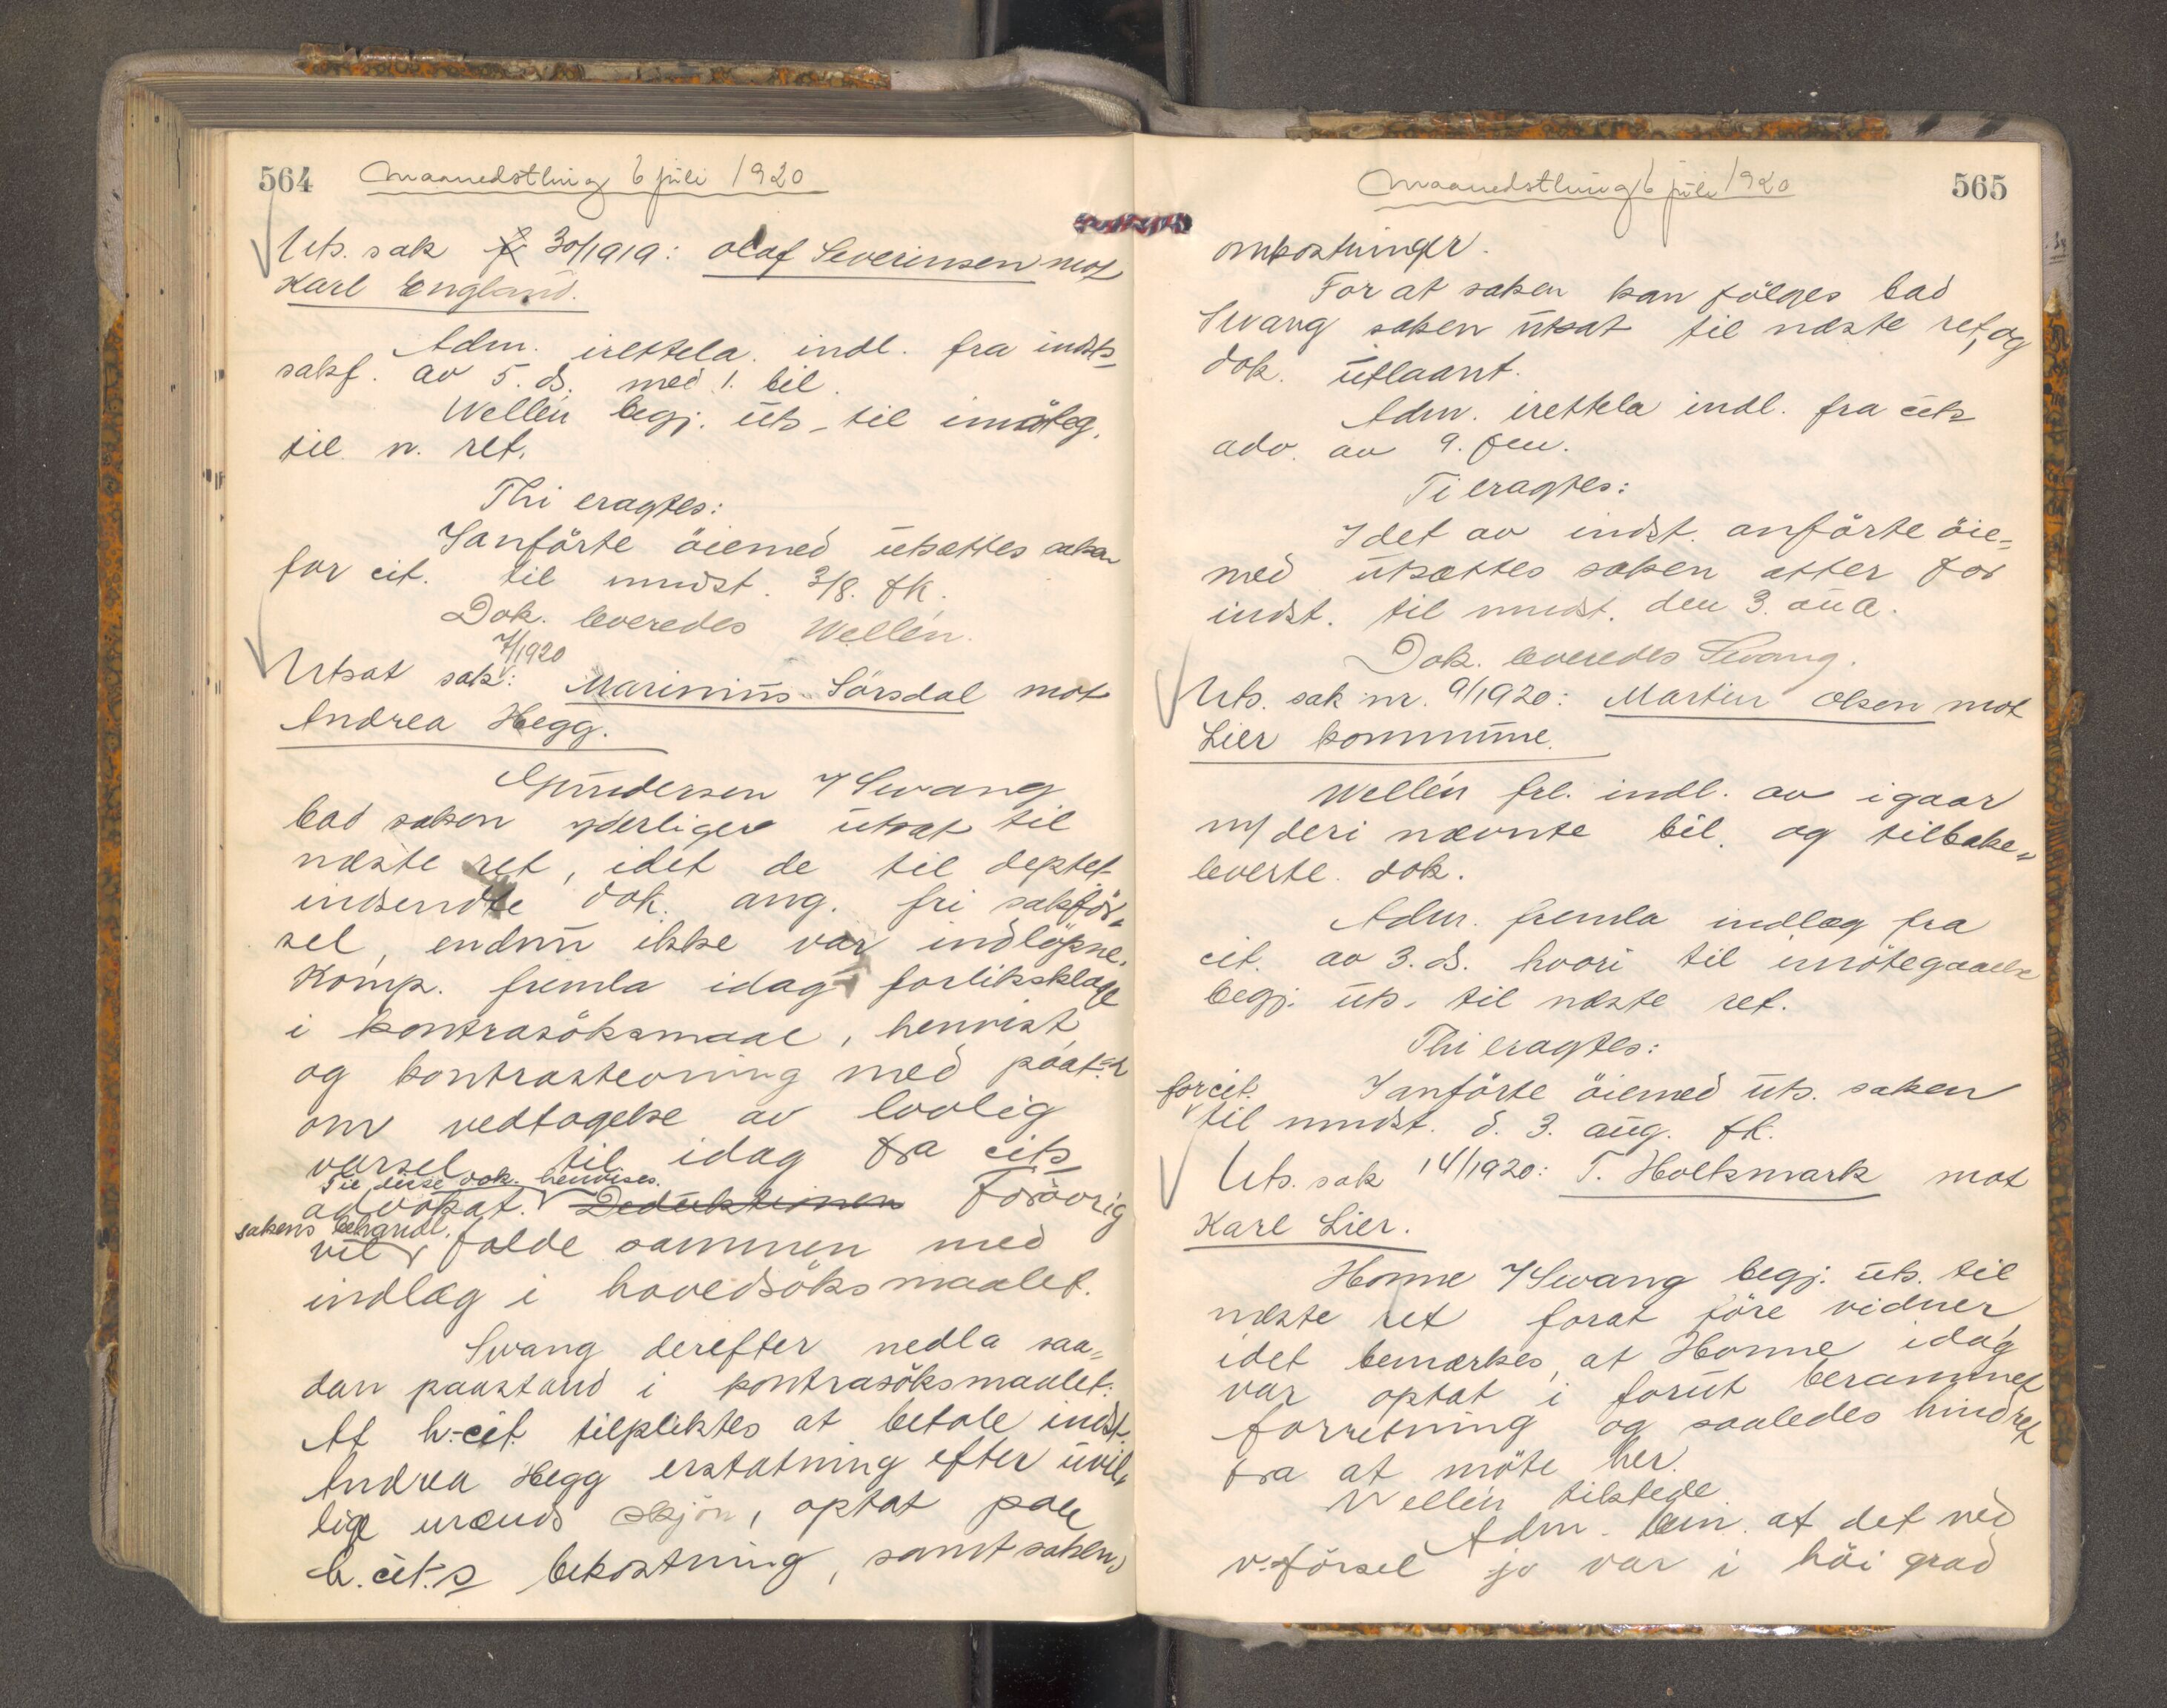 564 Maanedsthing 6 juli 1920
Uts. sak 30/1919: Olaf Severinsen mot
Karl England.
Adm. irettela. indl. fra indsts
sakf. av 5. ds. med 1. bil.
Wellén begj. uts. til imøteg.
til n. ret.
Thi eragtes:
I anförte öiemed utsættes saken
for cit. til mndst. 3/8. fk.
Dok. leveredes Wellén.
7/1920
Utsat sak: Marinius Sörsdal mot
Andrea Hegg.
Gundersen v/ Svang
bad saken yderligere utsat til
næste ret, idet de til deptet
indsendte dok. ang. fri sakför-
sel, endnu ikke var indlöpne.
Komp. fremla idag forliksklage
i kontrasöksmaal, henvist,
og kontrastevning med paat.
om vedtagelse av lovlig
varsel til idag fra cits
Til disse dok. henvises.
advokat. Deduktionen Forövrig
sakens behandl.
vil falde sammen med
indlæg i hovedsöksmaalet.
Svang derefter nedla saa-
dan paastand i kontrasöksmaalet:
At h.-cit. tilpliktes at betale indst.
Andrea Hegg erstatning efter uvil-
lige mænds skjön, optat paa
h.cit.s bekostning, samt sakens
Maanedsthing 6 juli 1920 565
omkostninger.
For at saken kan fölges bad
Svang saken utsat til næste ret, og
dok. utlaant.
Adm. irettela indl. fra cits
adv. av 9. jun.
Ti eragtes:
I det av indst. anförte öie-
med utsættes saken atter for
indst. til mndst. den 3. aug.
Dok. leveredes Svang.
Uts. sak nr. 9/1920: Martin Olsen mot
Lier kommune.
Wellén frl. indl. av igaar
m/ deri nævnte bil. og tilbake-
leverte dok.
Adm. fremla indlæg fra
cit. av 3. ds. hvori til imötegaaelse
begj. uts. til næste ret.
Thi eragtes:
for cit. I anförte öiemed uts. saken
til mndst. d. 3. aug. fk.
Uts. sak 14/1920: T. Holtsmark mot
Karl Lier.
Homme v/ Svang begj. uts. til
næste ret forat före vidner
idet bemærkes, at Homme idag
var optat i forut berammet
forretning og saaledes hindret
fra at möte her.
Wellén tilstede.
Adm. bem. at det ved
v.-försel jo var i höi grad